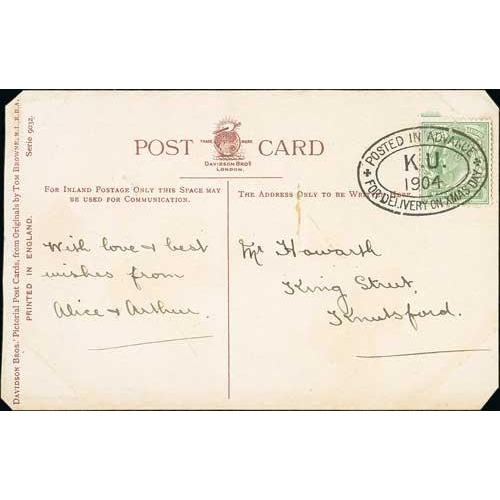 POST CARD
TRADE MARK
DAVIDSON BROS
LONDON.
FOR INLAND POSTAGE ONLY THIS SPACE MAY
BE USED FOR COMMUNICATION.
THE ADDRESS ONLY TO BE WRITTEN HERE
With love & best
wishes from
Alice & Arthur.
Mr Howarth
King Street,
Knutsford.
+ POSTED IN ADVANCE +
FOR DELIVERY ON XMAS DAY
K.U.
1904
DAVIDSON BROS.' Pictorial Post Cards, from Originals by TOM BROWNE, R.I., R.B.A.
Serie 9032.
PRINTED IN ENGLAND.